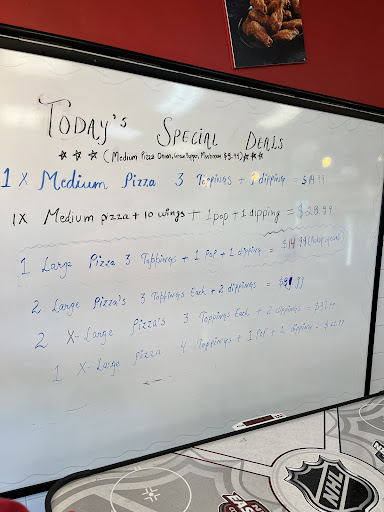 TODAY'S SPECIAL DEALS
(Medium Pizza Onion, Green Pepper, Mushroom $9.99)
1 X Medium Pizza 3 Toppings + 1 dipping = $14.99
1X Medium pizza + 10 wings + 1 pop + 1 dipping = $28.99
1 Large Pizza 3 Toppings + 1 Pop + 1 dipping = $19.99 (Pickup special)
2 Large Pizza's 3 Toppings Each + 2 dippings =
2 X-Large Pizza's 3 Toppings Each + 2 dippings =
1 X-Large Pizza 4 Toppings + 1 Pop + 2 dipping =
NHL